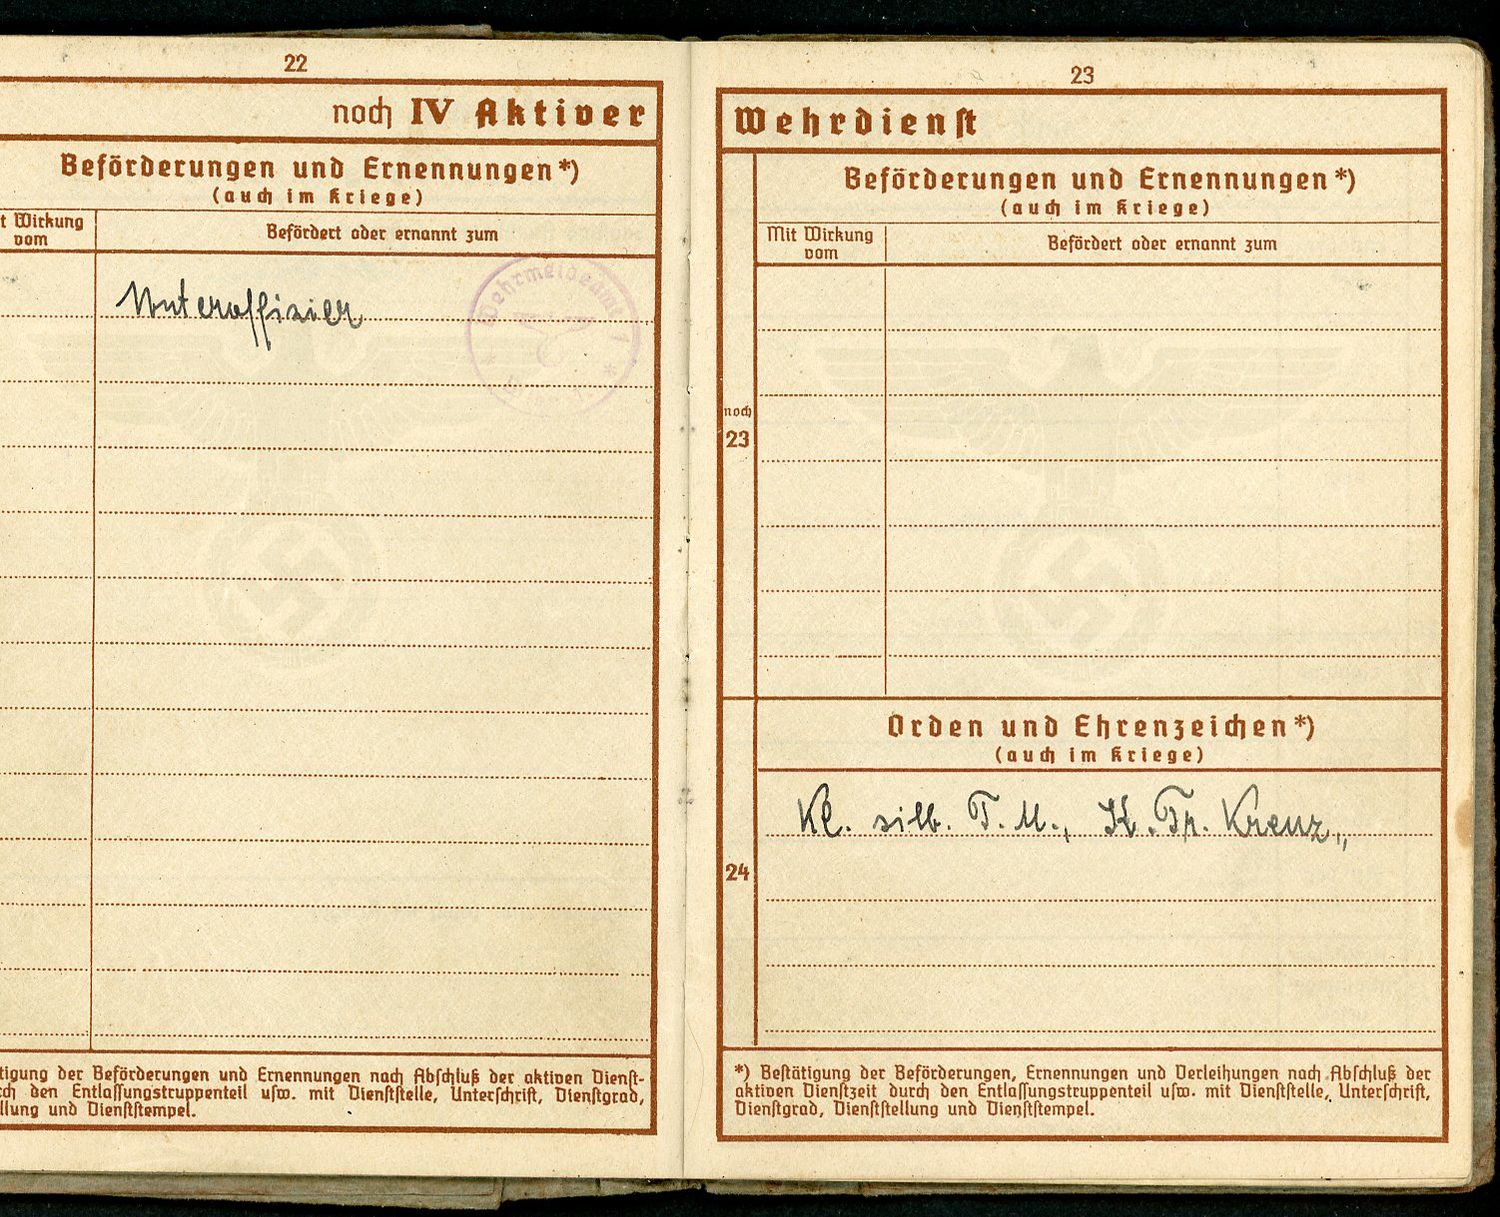 22
noch IV Aktiver
Beförderungen und Ernennungen*)
(auch im Kriege)
t Wirkung
vom
Befördert oder ernannt zum
Unteroffizier
Wehrmeldeamt 1
tigung der Beförderungen und Ernennungen nach Abschluß der aktiven Dienst-
ch den Entlassungstruppenteil usw. mit Dienststelle, Unterschrift, Dienstgrad,
llung und Dienststempel.
23
Wehrdienst
Beförderungen und Ernennungen*)
(auch im Kriege)
Mit Wirkung
vom
Befördert oder ernannt zum
noch
23
Orden und Ehrenzeichen*)
(auch im Kriege)
Kl. silb. T. M., K. Tr. Kreuz,,
24
*) Bestätigung der Beförderungen, Ernennungen und Verleihungen nach Abschluß der
aktiven Dienstzeit durch den Entlassungstruppenteil usw. mit Dienststelle, Unterschrift,
Dienstgrad, Dienststellung und Dienststempel.